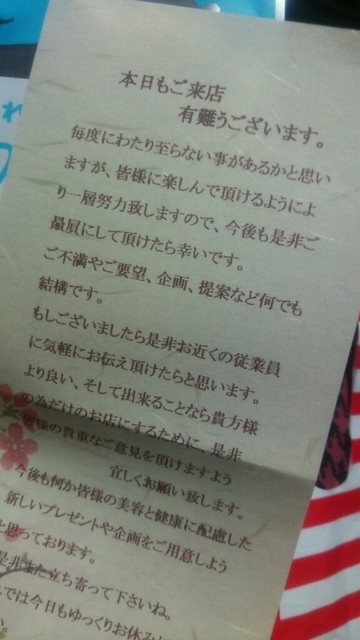 本日もご来店
有難うございます。
毎度にわたり至らない事があるかと思い
ますが、皆様に楽しんで頂けるようによ
り一層努力致しますので、今後も是非ご
贔屓にして頂けたら幸いです。
ご不満やご要望、企画、提案など何でも
結構です。
もしございましたら是非お近くの従業員
に気軽にお伝え頂けたらと思います。
より良い、そして出来ることなら貴方様
の為だけのお店にするために、是非
皆様の貴重なご意見を頂けますよう
宜しくお願い致します。
今後も何か皆様の美容と健康に配慮した
新しいプレゼントや企画をご用意しよう
と思っております。
是非また立ち寄って下さいね。
では今日もゆっくりお休み